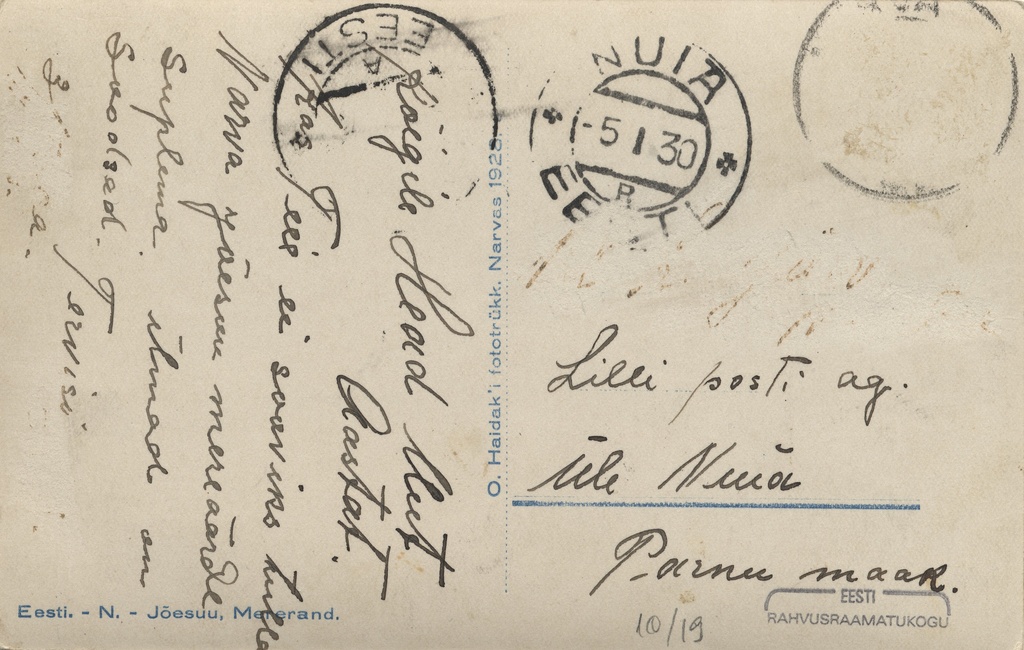 Kõigile Head Uut
Aastat.
Kas Teie ei sooviks tulla
Narva jõesuu mereäärde
Suplema ilmad on
Soodsad. Tervisi
EESTI
O. Haidak'i fototrükk. Narvas 1928
NUIA
-5 I 30
EESTI
Lilli posti ag.
Üle Nuia
Pärnu maak.
Eesti. - N. - Jõesuu, Mererand.
10/19
EESTI
RAHVUSRAAMATUKOGU